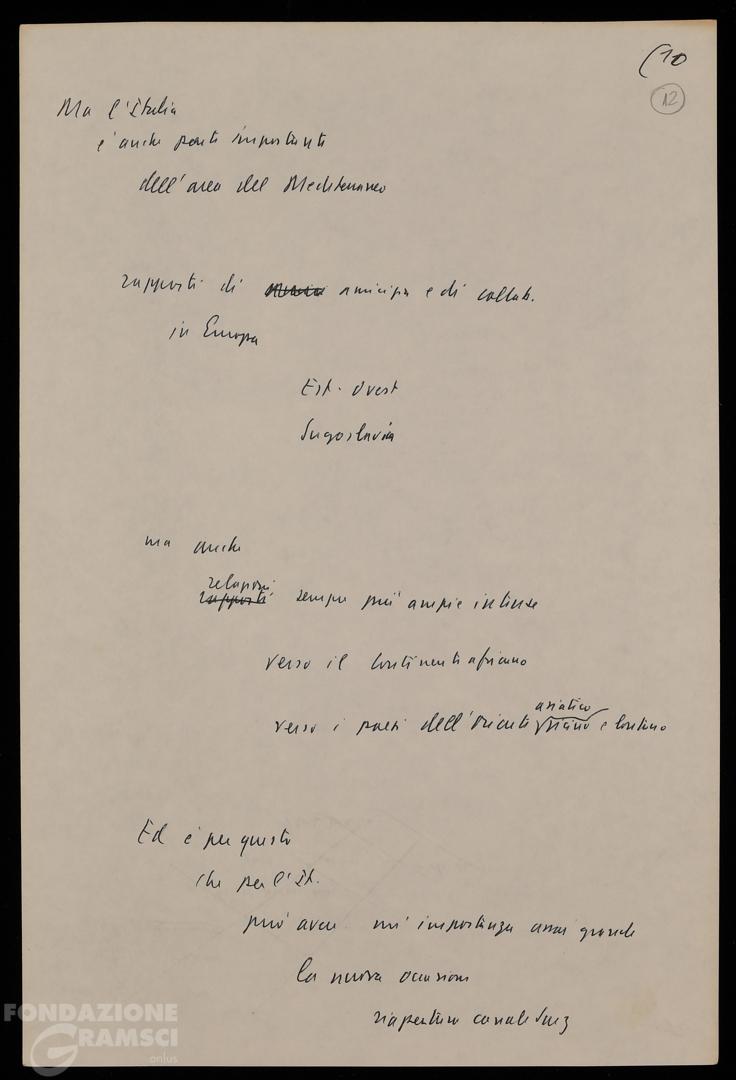 (10
12
Ma l'Italia
è anche parte importante
dell'area del Mediterraneo
rapporti di amicizia e di collab.
in Europa
Est-Ovest
Jugoslavia
ma anche
relazioni
rapporti sempre più ampie intense
verso il continente africano
asiatico
verso i paesi dell'Oriente vicino e lontano
Ed è per questo
che per l'It.
può avere un'importanza assai grande
la nuova occasione
riapertura canale Suez
FONDAZIONE
GRAMSCI
onlus